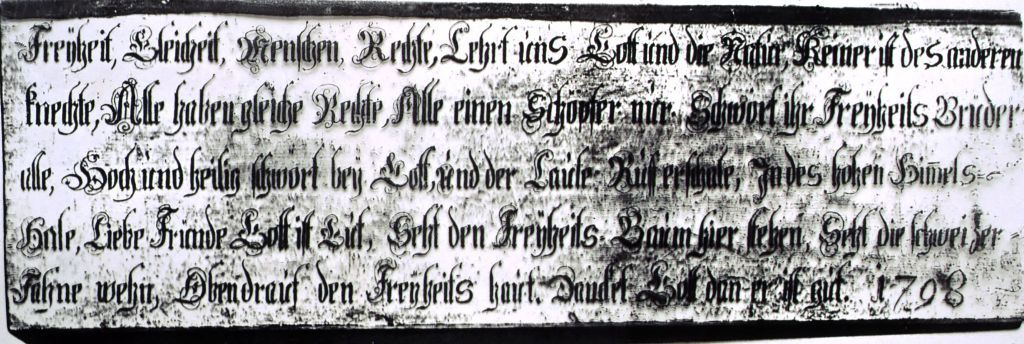 Freÿheit, Gleicheit, Menschen, Rechte, Lehrt uns Gott und die Natur, Keiner ist des anderen
knechte, Alle haben gleiche Rechte, Alle einen Schöpfer nur. Schwört ihr Freÿheits Brüder
alle, Hoch und heilig schwört beÿ Gott, und der Laute Ruf erschale, In des hohen Him̄els=
Hale, Liebe Friunde Gott ist Gut, Seht den Freÿheits. Baum hier stehen, Seht die schweizer
Fahne wehn, Obendrauf den Freÿheits haut. Dancket Gott dan̄ er ist gut. 1798